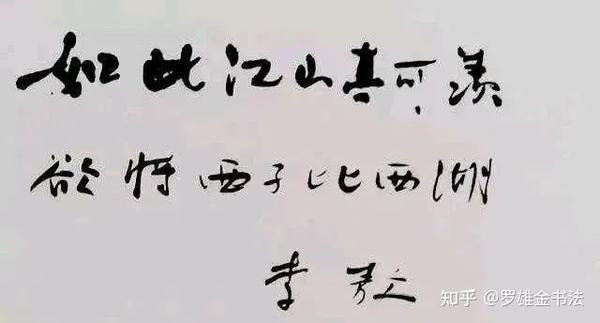 如此江山真可羡
欲将西子比西湖
李敖
知乎 @罗雄金书法